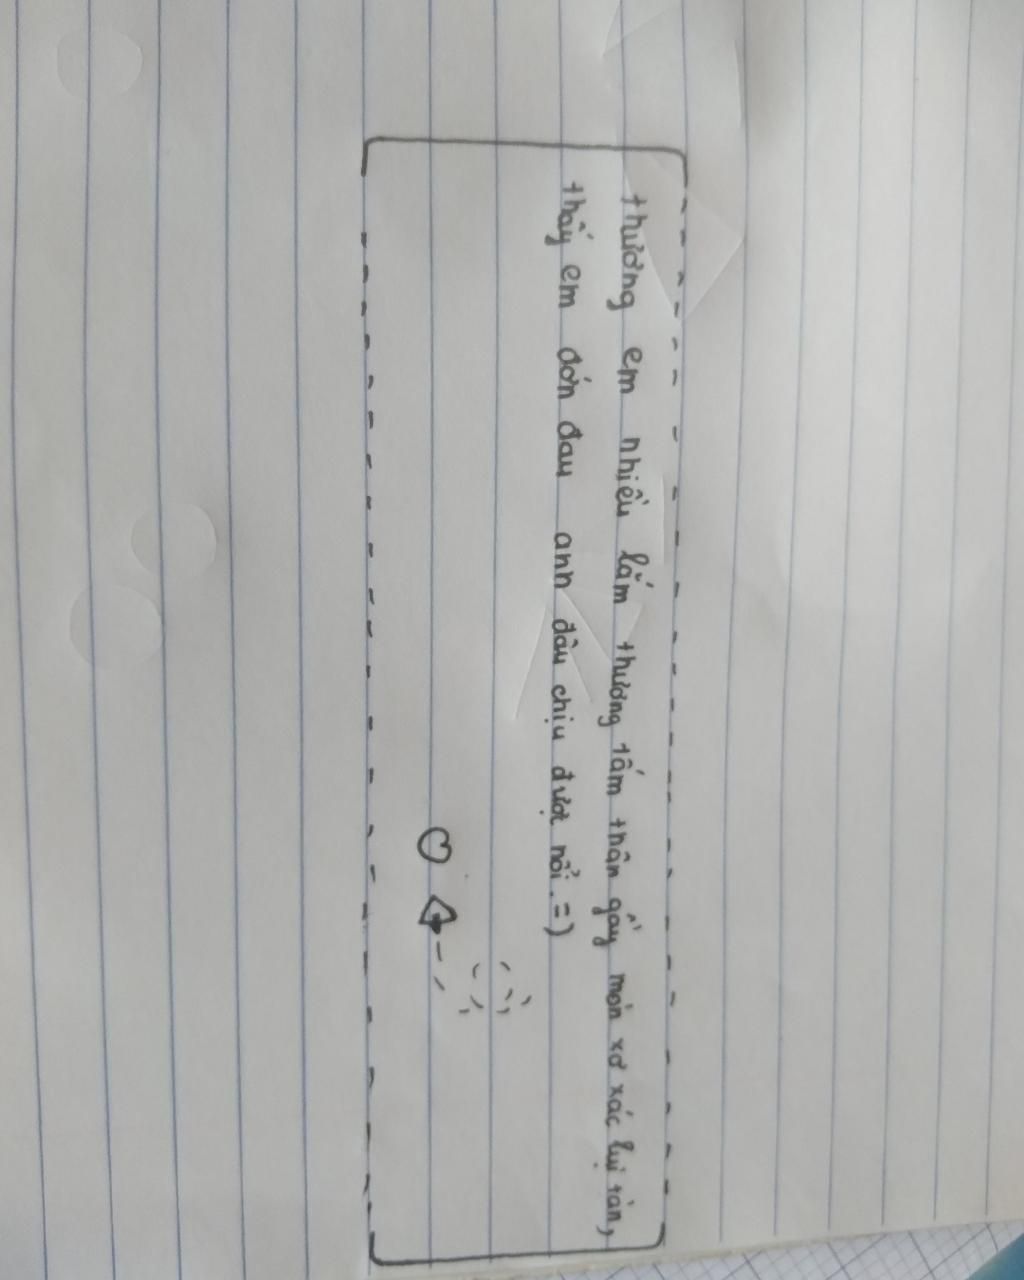 thương em nhiều lắm thương tấm thân gầy mòn xơ xác lụi tàn,
thấy em đớn đau anh đâu chịu được nổi. =)